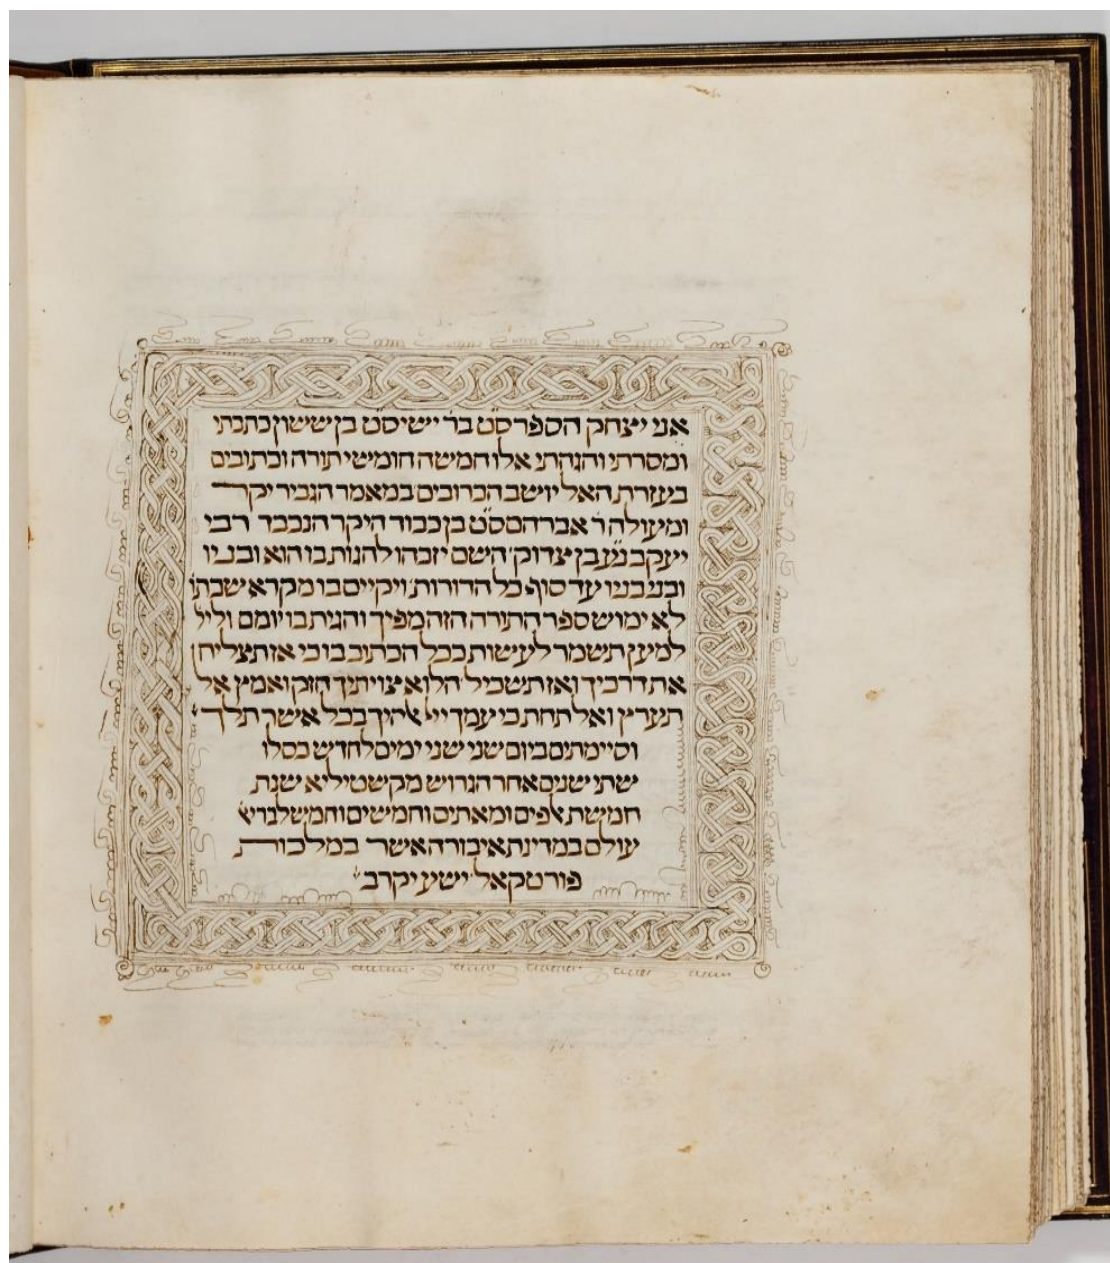 אני יצחק הספר ס״ט בר׳ ישי ס״ט בן ששון כתבתי
ומסרתי והגהתי אלו חמשה חומשי תורה וכתובים
בעזרת האל יושב הכרובים במאמר הגביר יקר
ומעולה ר׳ אברהם ס״ט בן כבוד היקר הנכבד רבי
יעקב נ״ע בן צדוק׳ השם יזכהו להגות בו הוא ובניו
ובני בניו עד סוף כל הדורות׳ ויקויים בו מקרא שכתו׳
לא ימוש ספר התורה הזה מפיך והגית בו יומם וליל׳
למען תשמר לעשות ככל הכתוב בו כי אז תצליח
את דרכיך ואז תשכיל׳ הלוא צויתיך חזק ואמץ אל
תערץ ואל תחת כי עמך ייי ﭏהיך בכל אשר תלך׳
וסיימתים ביום שני שני ימים לחדש כסלו
שתי שנים אחר הגרוש מקשטיליא שנת
חמשת ﭏפים ומאתים וחמשים וחמש לבריא׳
עולם במדינת איבורה אשר במלכות
פורטקאל׳ ישע יקרב׳